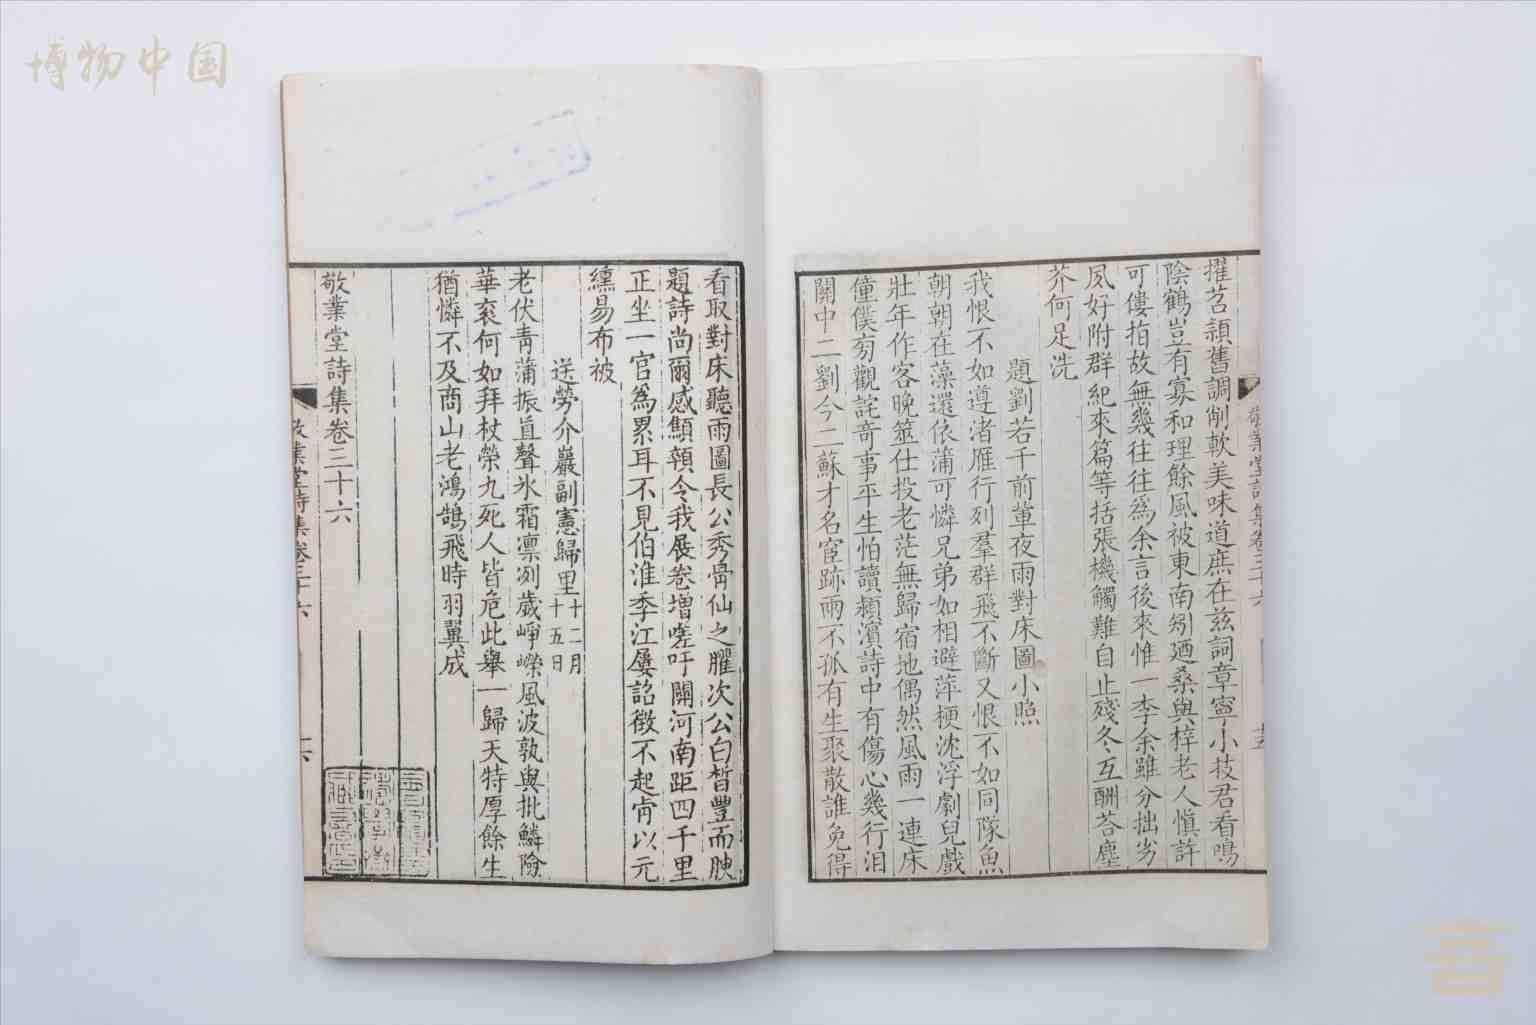 博物中国
擢苕頴舊調削軟美味道庶在兹詞章寧小技君看鳴
陰鶴豈有寡和理餘風被東南芻廼桑與梓老人愼許
可僂指故無幾往往爲余言後來惟一李余雖分拙劣
夙好附群紀來篇等括張機觸難自止殘冬互酬荅塵
芥何足洗
題劉若千前軰夜雨對床圖小照
我恨不如遵渚雁行列羣群飛不斷又恨不如同隊魚
朝朝在藻還依蒲可憐兄弟如相避萍梗沈浮劇兒戲
壯年作客晚筮仕投老茫無歸宿地偶然風雨一連床
僮僕旁觀詫奇事平生怕讀潁濱詩中有傷心幾行泪
關中二劉今二蘇才名宦跡兩不孤有生聚散誰免得
看取對床聽雨圖長公秀骨仙之臞次公白晳豐而腴
題詩尚爾感顦顇令我展卷増嗟吁關河南距四千里
正坐一官爲累耳不見伯淮季江屢詔徴不起肯以元
纁易布被
送勞介巖副憲歸里十二月十五日
老伏靑蒲振直聲氷霜凛冽歲崢嶸風波孰與批鱗險
華衮何如拜杖榮九死人皆危此舉一歸天特厚餘生
猶憐不及商山老鴻鵠飛時羽翼成
敬業堂詩集卷三十六
敬業堂詩集卷三十六